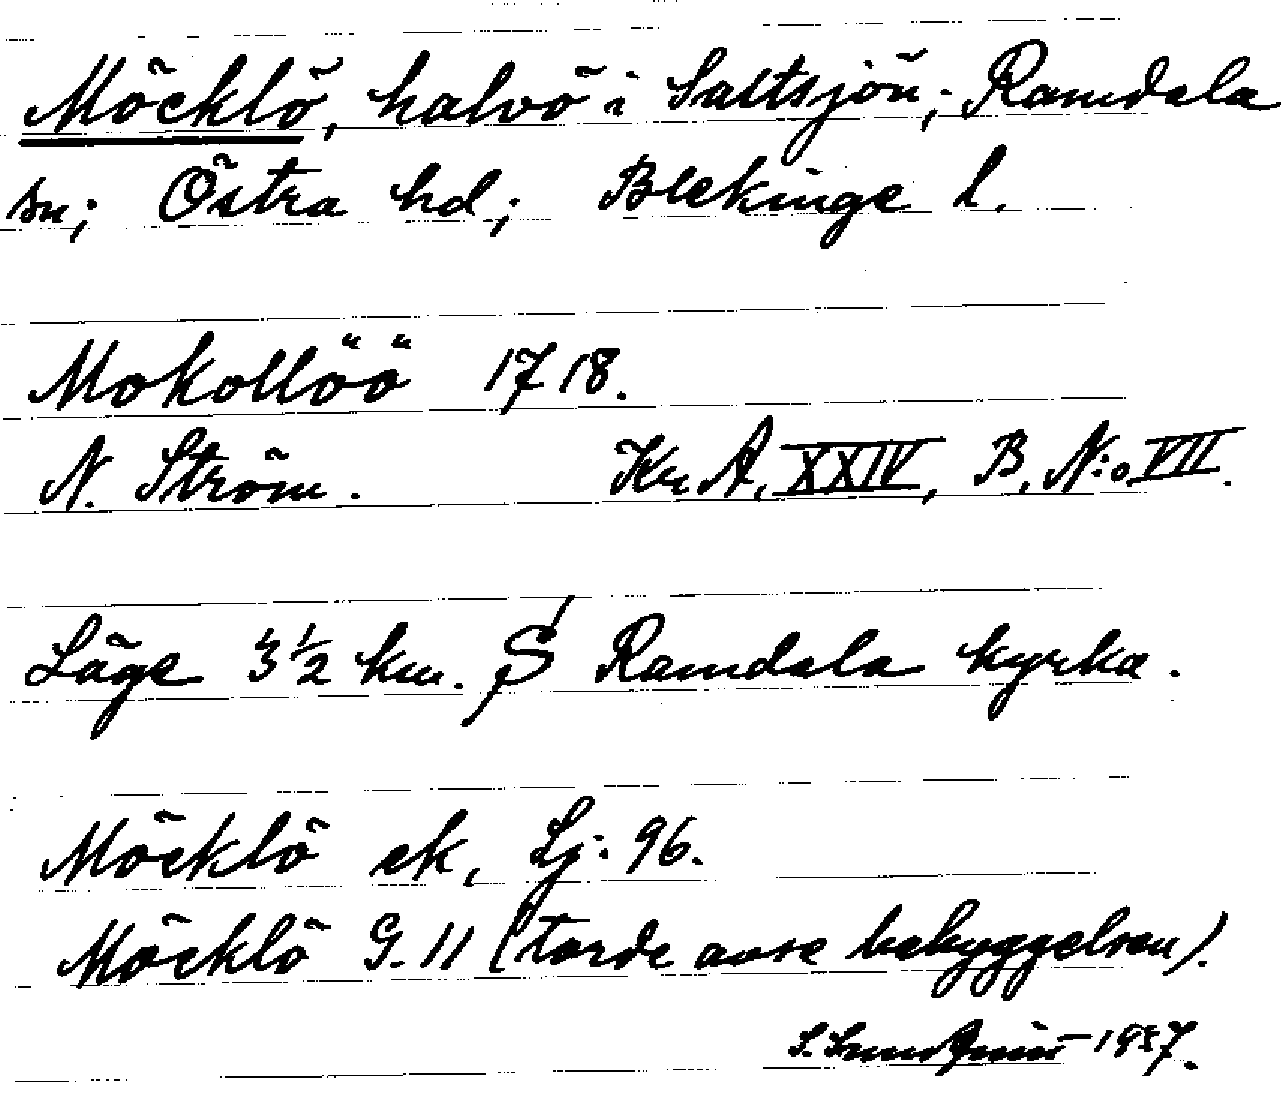 Möcklö, halvö i Saltsjön; Ramdala
sn; Östra hd; Blekinge l.
Mokollöö 1718.
N. Ström. Kr. A, XXIV, B, N:o VII.
Läge 3 1/2 km. S Ramdala kyrka.
Möcklö ek, Lj: 96.
Möcklö G. 11 (torde avse bebyggelsen).